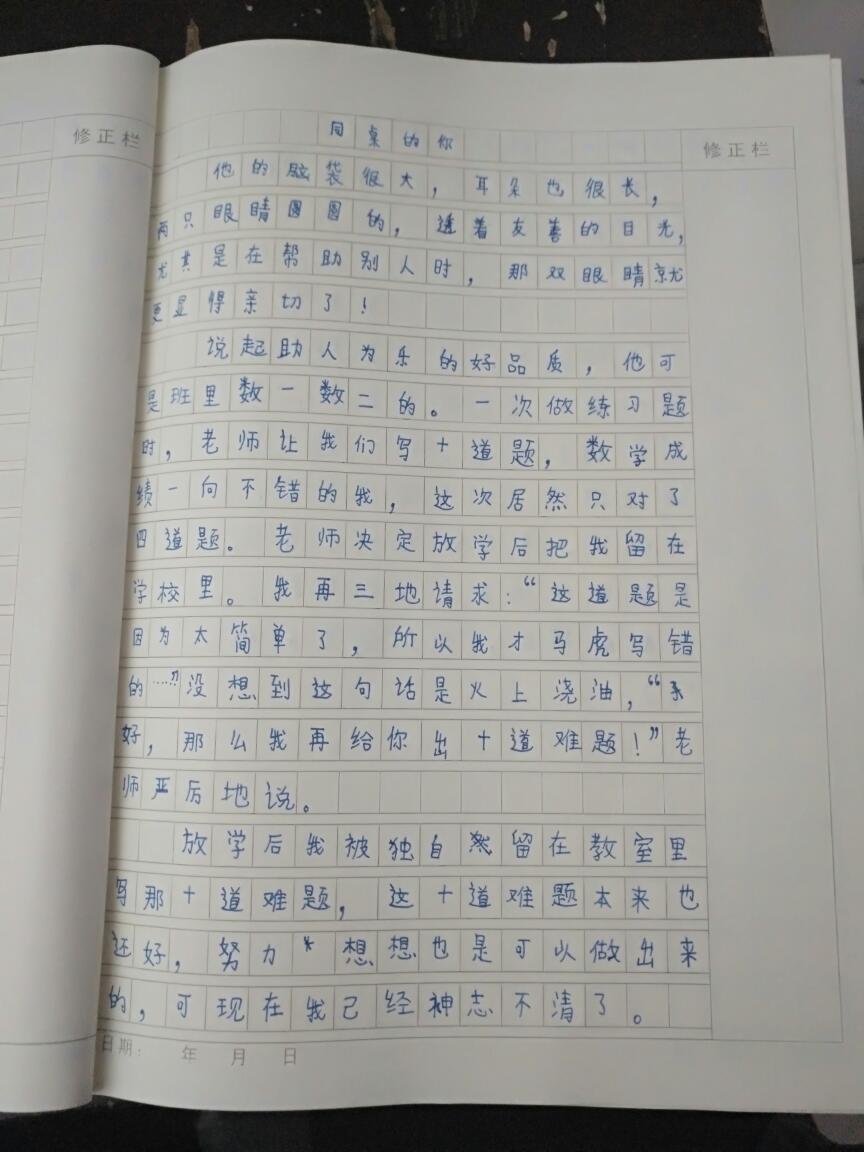 修正栏
修正栏
同桌的你
他的脑袋很大，耳朵也很长，
两只眼睛圆圆的，透着友善的目光，
尤其是在帮助别人时，那双眼睛就
更显得亲切了！
说起助人为乐的好品质，他可
是班里数一数二的。一次做练习题
时，老师让我们写十道题，数学成
绩一向不错的我，这次居然只对了
四道题。老师决定放学后把我留在
学校里。我再三地请求：“这道题是
因为太简单了，所以我才马虎写错
的……”没想到这句话是火上浇油，“
好，那么我再给你出十道难题！”老
师严厉地说。
放学后我被独自留在教室里
写那十道难题，这十道难题本来也
还好，努力想想也是可以做出来
的，可现在我已经神志不清了。
日期： 年 月 日